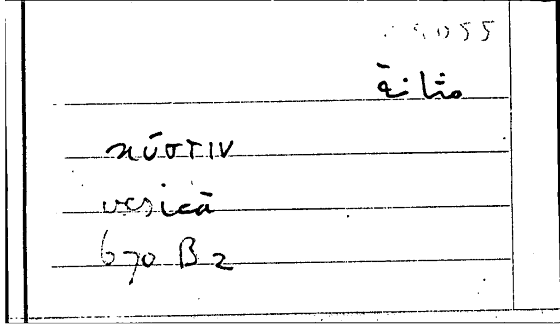 مثانة
κύστιν
vesica
670 B 2